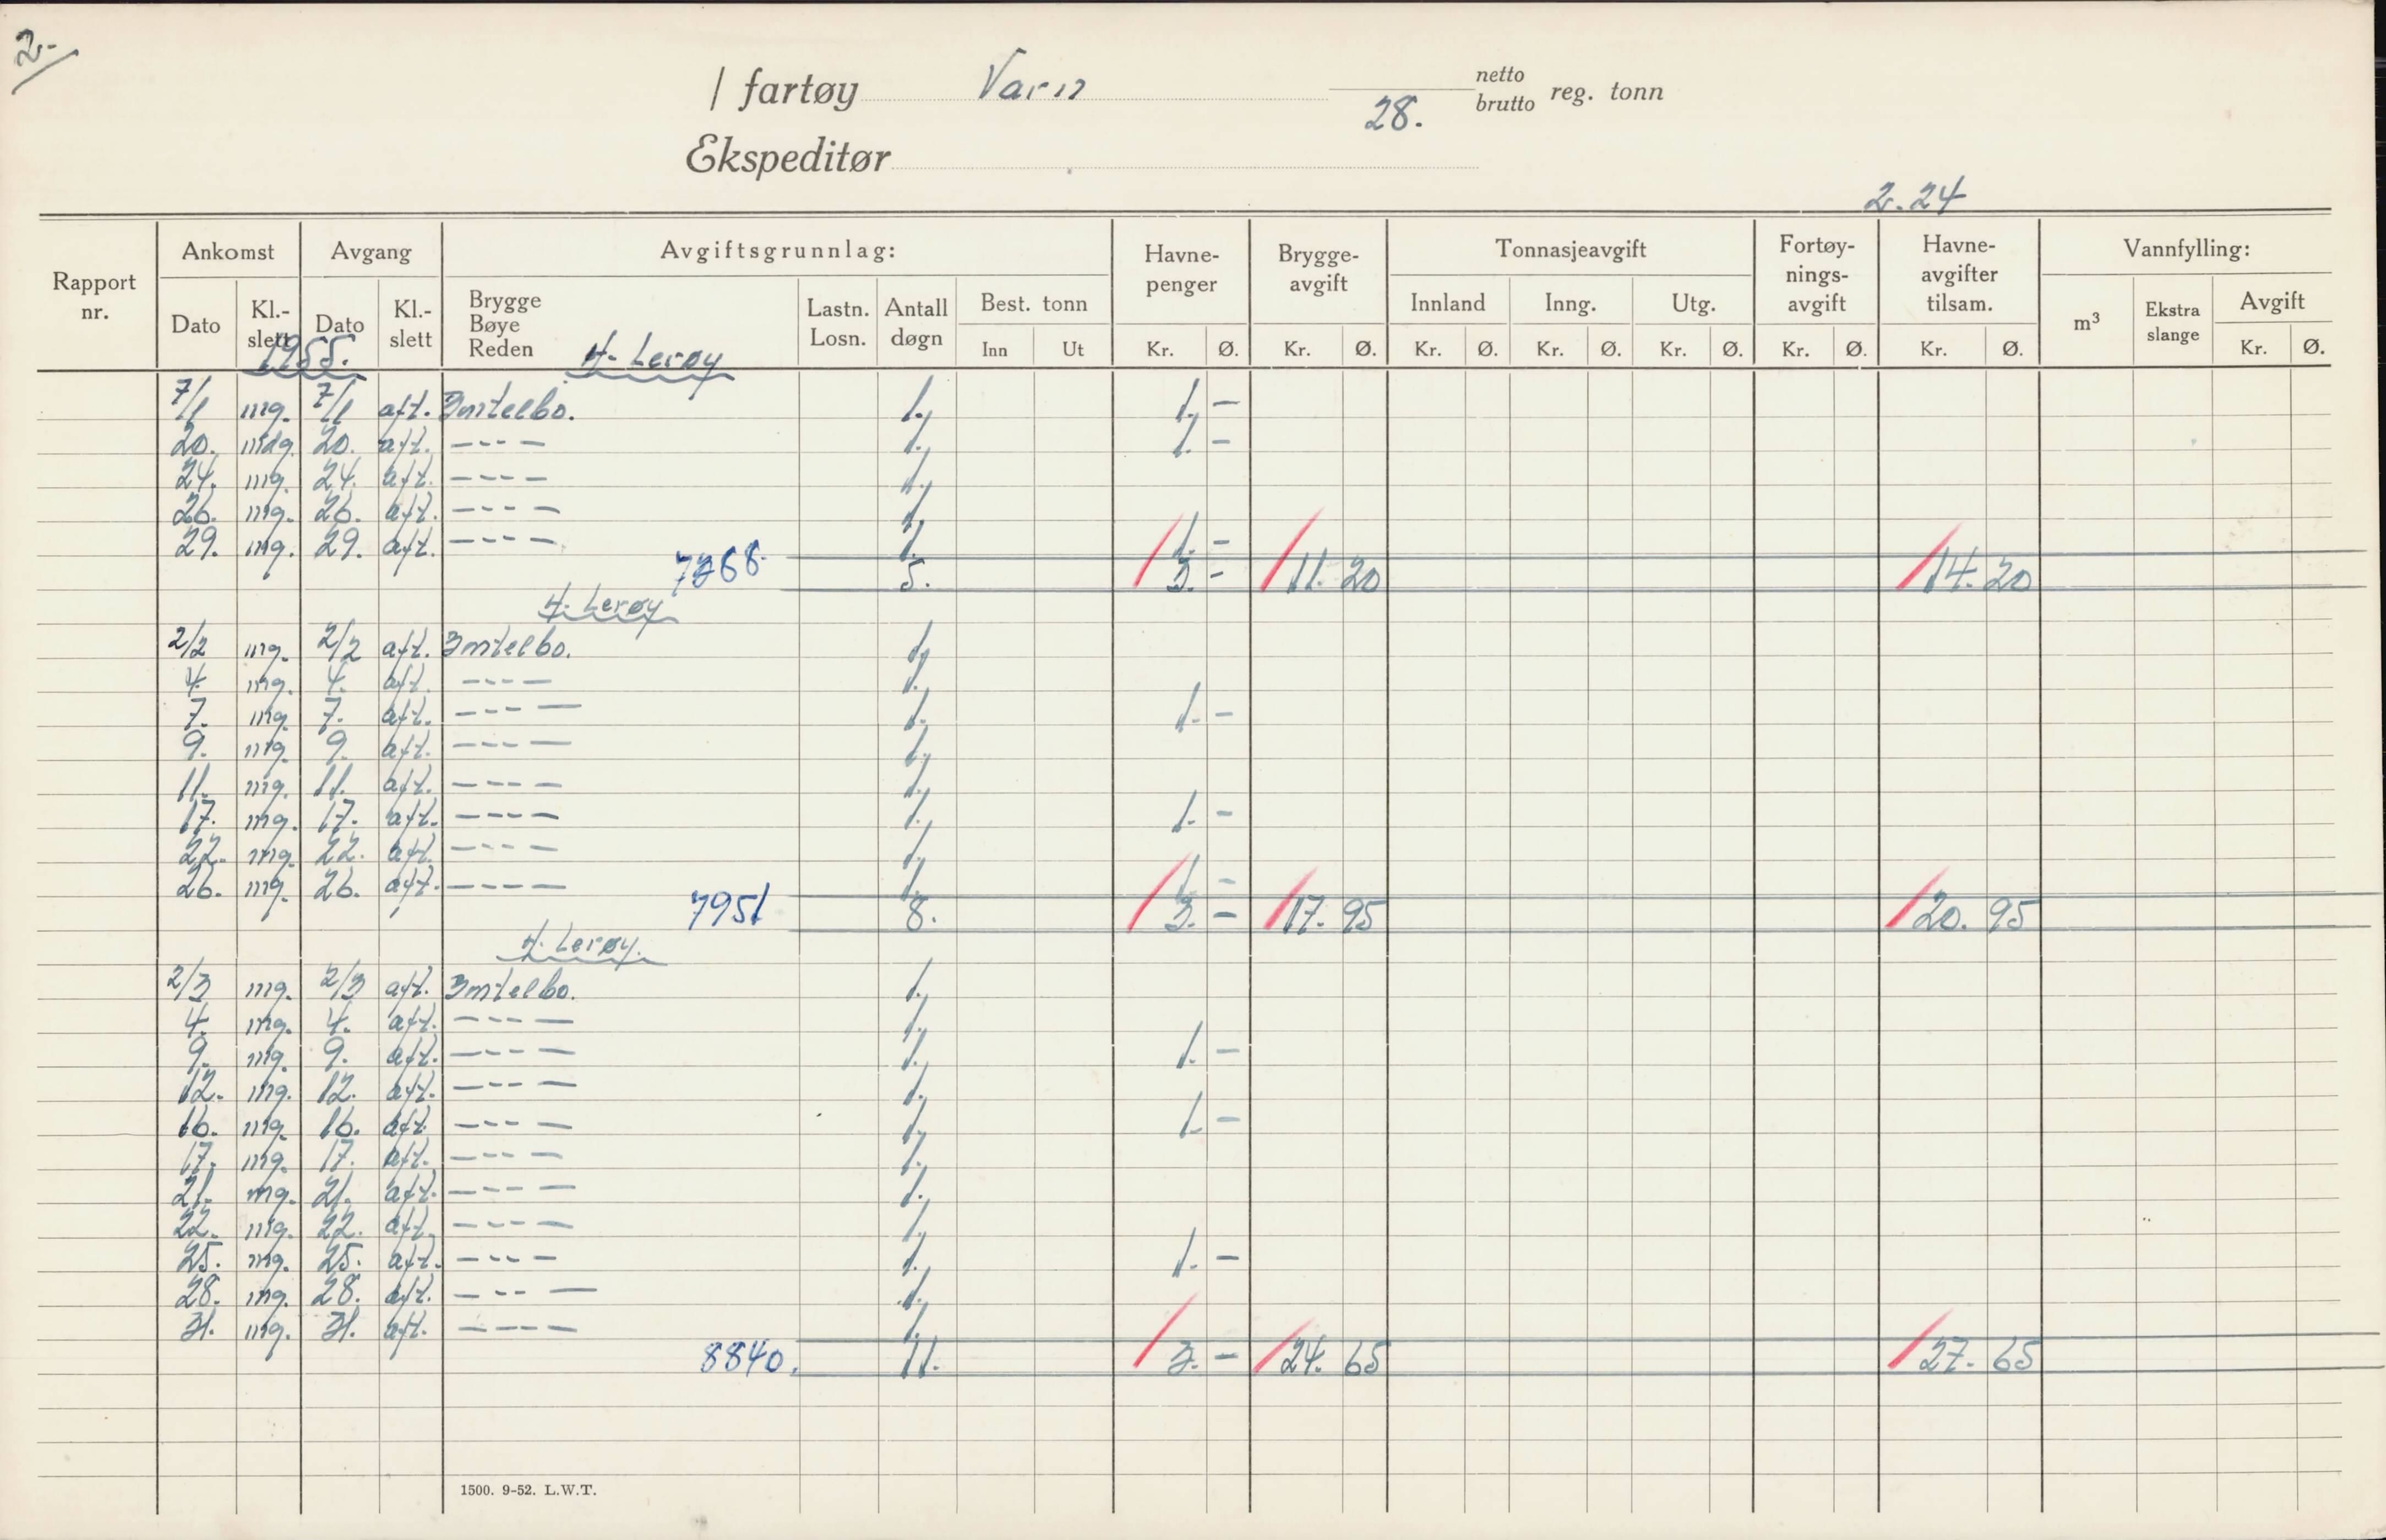 2.-
/ fartøy Varn netto
28. brutto reg. tonn
Ekspeditør
2.24
Rapport nr. Ankomst Avgang Avgiftsgrunnlag: Havne-penger Brygge-avgift Tonnasjeavgift Fortøy-nings-avgift Havne-avgifter tilsam. Vannfylling:
Dato Kl.-slett Dato Kl.-slett Brygge Bøye Reden Lastn. Losn. Antall døgn Best. tonn Innland Inng. Utg. m³ Ekstra slange Avgift
Inn Ut Kr. Ø. Kr. Ø. Kr. Ø. Kr. Ø. Kr. Ø. Kr. Ø. Kr. Ø. Kr. Ø.
1955. H. Lerøy
7/1 mg. 7/1 aft. 1. 1. -
20. mdg. 20. aft. ---- 1. 1. -
24. mg. 24. aft. ---- 1.
26. mg. 26. aft. ---- 1.
29. mg. 29. aft. ---- 1. 1. -
7268. 5. 3. - 11. 20 14. 20
H. Lerøy
2/2 mg. 2/2 aft. 1.
4. mg. 4. aft. ---- 1.
7. mg. 7. aft. ---- 1. 1. -
9. mg. 9. aft. ---- 1.
11. mg. 11. aft. ---- 1.
17. mg. 17. aft. ---- 1. 1. -
22. mg. 22. aft. ---- 1.
26. mg. 26. aft. ---- 1. 1. -
7951 8. 3. - 17. 95 20. 95
H. Lerøy.
2/3 mg. 2/3 aft. 1.
4. mg. 4. aft. ---- 1.
9. mg. 9. aft. ---- 1. 1. -
12. mg. 12. aft. ---- 1.
16. mg. 16. aft. ---- 1. 1. -
17. mg. 17. aft. ---- 1.
21. mg. 21. aft. ---- 1.
22. mg. 22. aft. ---- 1.
25. mg. 25. aft. ---- 1. 1. -
28. mg. 28. aft. ---- 1.
31. mg. 31. aft. ---- 1.
8840. 11. 3. - 24. 65 27. 65
1500. 9-52. L.W.T.